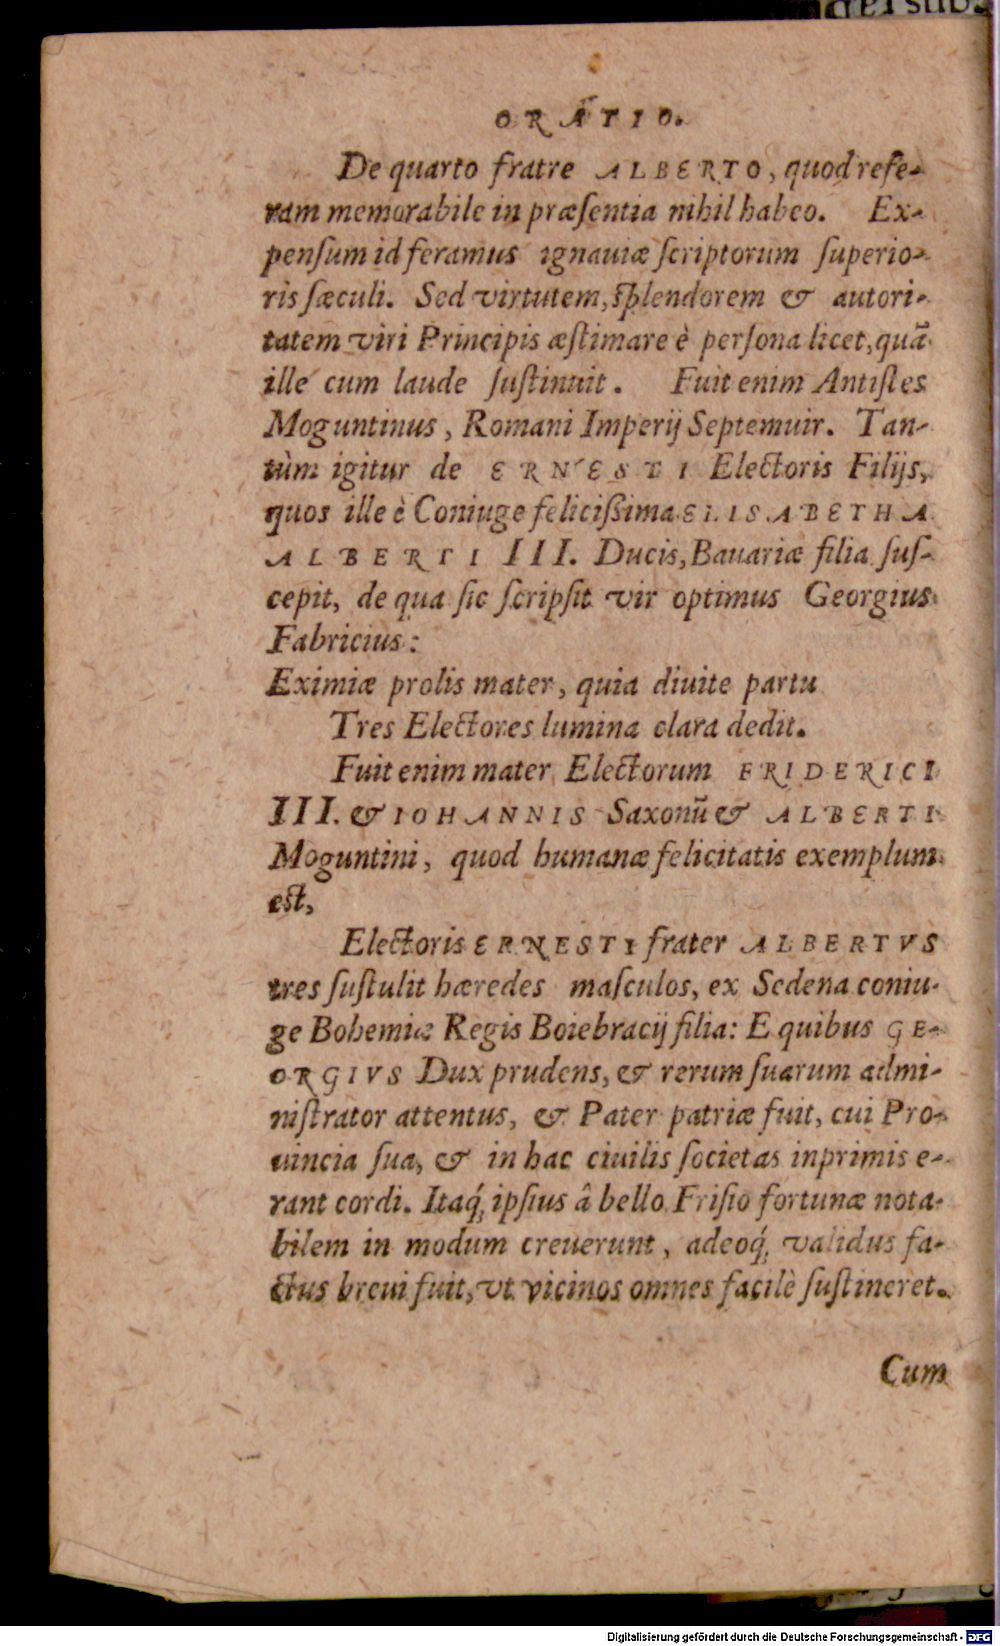 ORATIO.
De quarto fratre ALBERTO, quod refe-
ram memorabile in præſentia nihil habeo. Ex-
penſum id feramus ignauiæ ſcriptorum ſuperio-
ris ſæculi. Sed virtutem, ſplendorem & autori-
tatem viri Principis æſtimare è perſona licet, quã
ille cum laude ſuſtinuit. Fuit enim Antiſtes
Moguntinus, Romani Imperij Septemuir. Tan-
tùm igitur de ERNESTI Electoris Filijs,
quos ille è Coniuge feliciſſima ELISABETHA
ALBERTI III. Ducis, Bauariæ filia ſuſ-
cepit, de qua ſic ſcripſit vir optimus Georgius
Fabricius:
Eximiæ prolis mater, quia diuite partu
Tres Electores lumina clara dedit.
Fuit enim mater Electorum FRIDERICI
III. & IOHANNIS Saxonũ & ALBERTI
Moguntini, quod humanæ felicitatis exemplum
est,
Electoris ERNESTI frater ALBERTVS
tres ſuſtulit hæredes maſculos, ex Sedena coniu-
ge Bohemiæ Regis Boiebracij filia: E quibus GE-
ORGIVS Dux prudens, & rerum ſuarum admi-
niſtrator attentus, & Pater patriæ fuit, cui Pro-
uincia ſua, & in hac ciuilis ſocietas inprimis e-
rant cordi. Itaq́; ipſius â bello Friſio fortunæ nota-
bilem in modum creuerunt, adeoq́; validus fa-
ctus breui fuit, vt vicinos omnes facilè ſuſtineret.
Cum
Digitalisierung gefördert durch die Deutsche Forschungsgemeinschaft - DFG